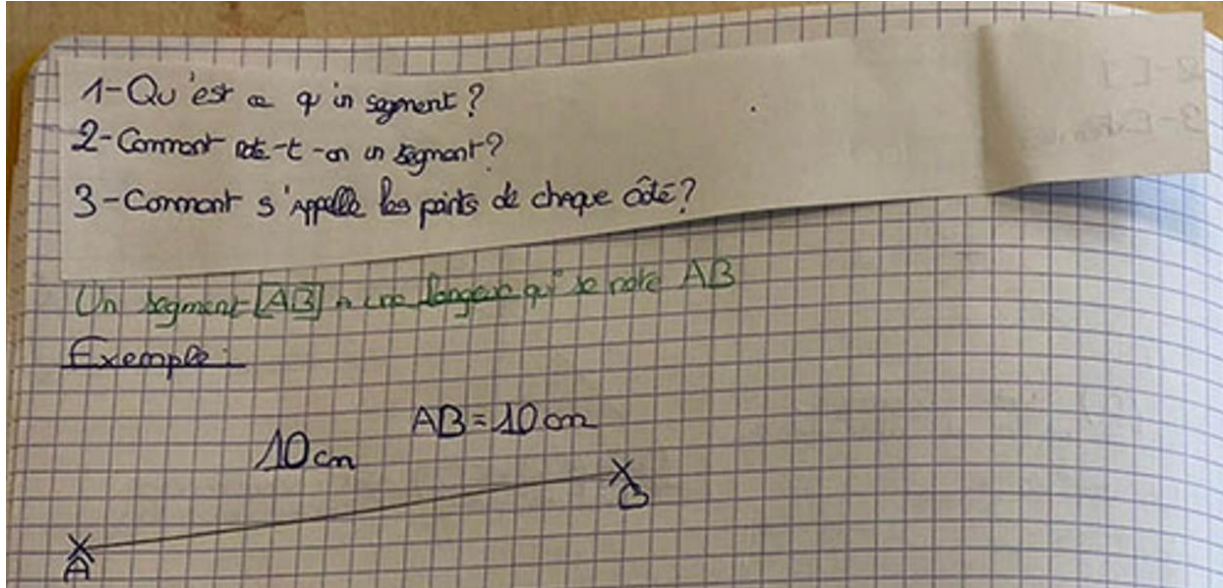 1-Qu'est ce qu'un segment?
2-Comment note-t-on un segment?
3-Comment s'appelle les points de chaque côté?
Un segment [AB] a une longeur qui se note AB
Exemple:
AB=10cm
10cm
B
A